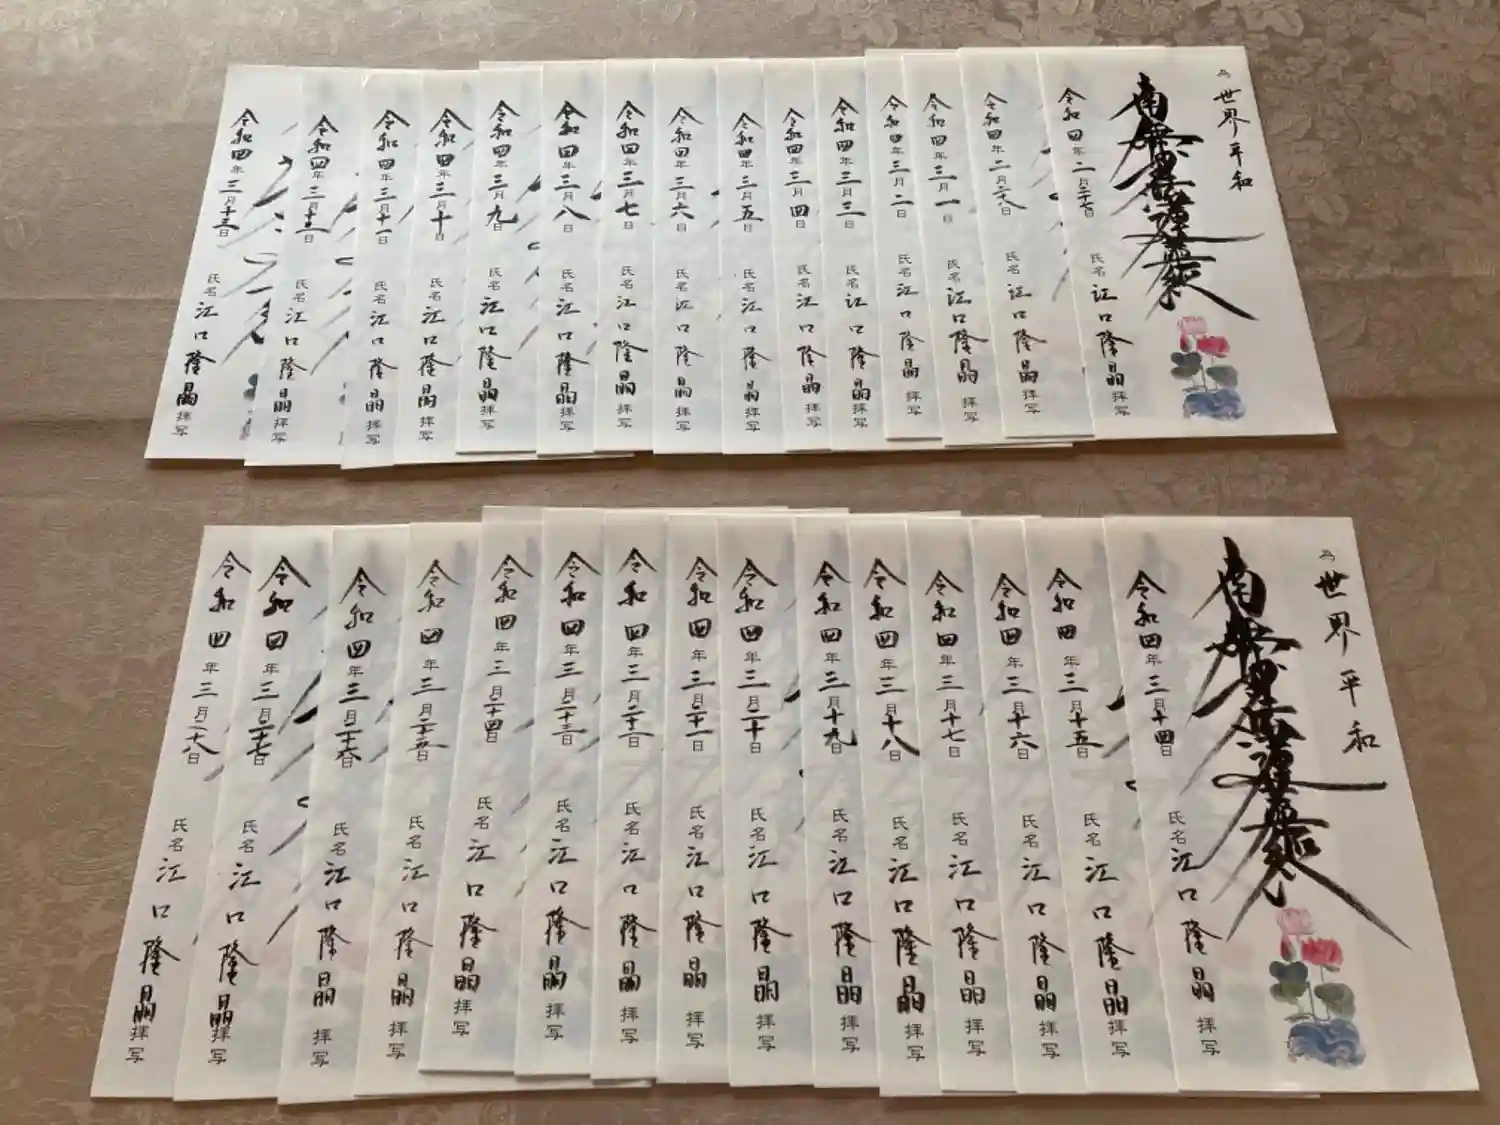 為世界平和
南無妙法蓮華経
令和四年二月二十七日 氏名 江口隆晶 拝写
令和四年二月二十八日 氏名 江口隆晶 拝写
令和四年三月一日 氏名 江口隆晶 拝写
令和四年三月二日 氏名 江口隆晶 拝写
令和四年三月三日 氏名 江口隆晶 拝写
令和四年三月四日 氏名 江口隆晶 拝写
令和四年三月五日 氏名 江口隆晶 拝写
令和四年三月六日 氏名 江口隆晶 拝写
令和四年三月七日 氏名 江口隆晶 拝写
令和四年三月八日 氏名 江口隆晶 拝写
令和四年三月九日 氏名 江口隆晶 拝写
令和四年三月十日 氏名 江口隆晶 拝写
令和四年三月十一日 氏名 江口隆晶 拝写
令和四年三月十二日 氏名 江口隆晶 拝写
令和四年三月十三日 氏名 江口隆晶 拝写
為世界平和
南無妙法蓮華経
令和四年三月十四日 氏名 江口隆晶 拝写
令和四年三月十五日 氏名 江口隆晶 拝写
令和四年三月十六日 氏名 江口隆晶 拝写
令和四年三月十七日 氏名 江口隆晶 拝写
令和四年三月十八日 氏名 江口隆晶 拝写
令和四年三月十九日 氏名 江口隆晶 拝写
令和四年三月二十日 氏名 江口隆晶 拝写
令和四年三月二十一日 氏名 江口隆晶 拝写
令和四年三月二十二日 氏名 江口隆晶 拝写
令和四年三月二十三日 氏名 江口隆晶 拝写
令和四年三月二十四日 氏名 江口隆晶 拝写
令和四年三月二十五日 氏名 江口隆晶 拝写
令和四年三月二十六日 氏名 江口隆晶 拝写
令和四年三月二十七日 氏名 江口隆晶 拝写
令和四年三月二十八日 氏名 江口隆晶 拝写